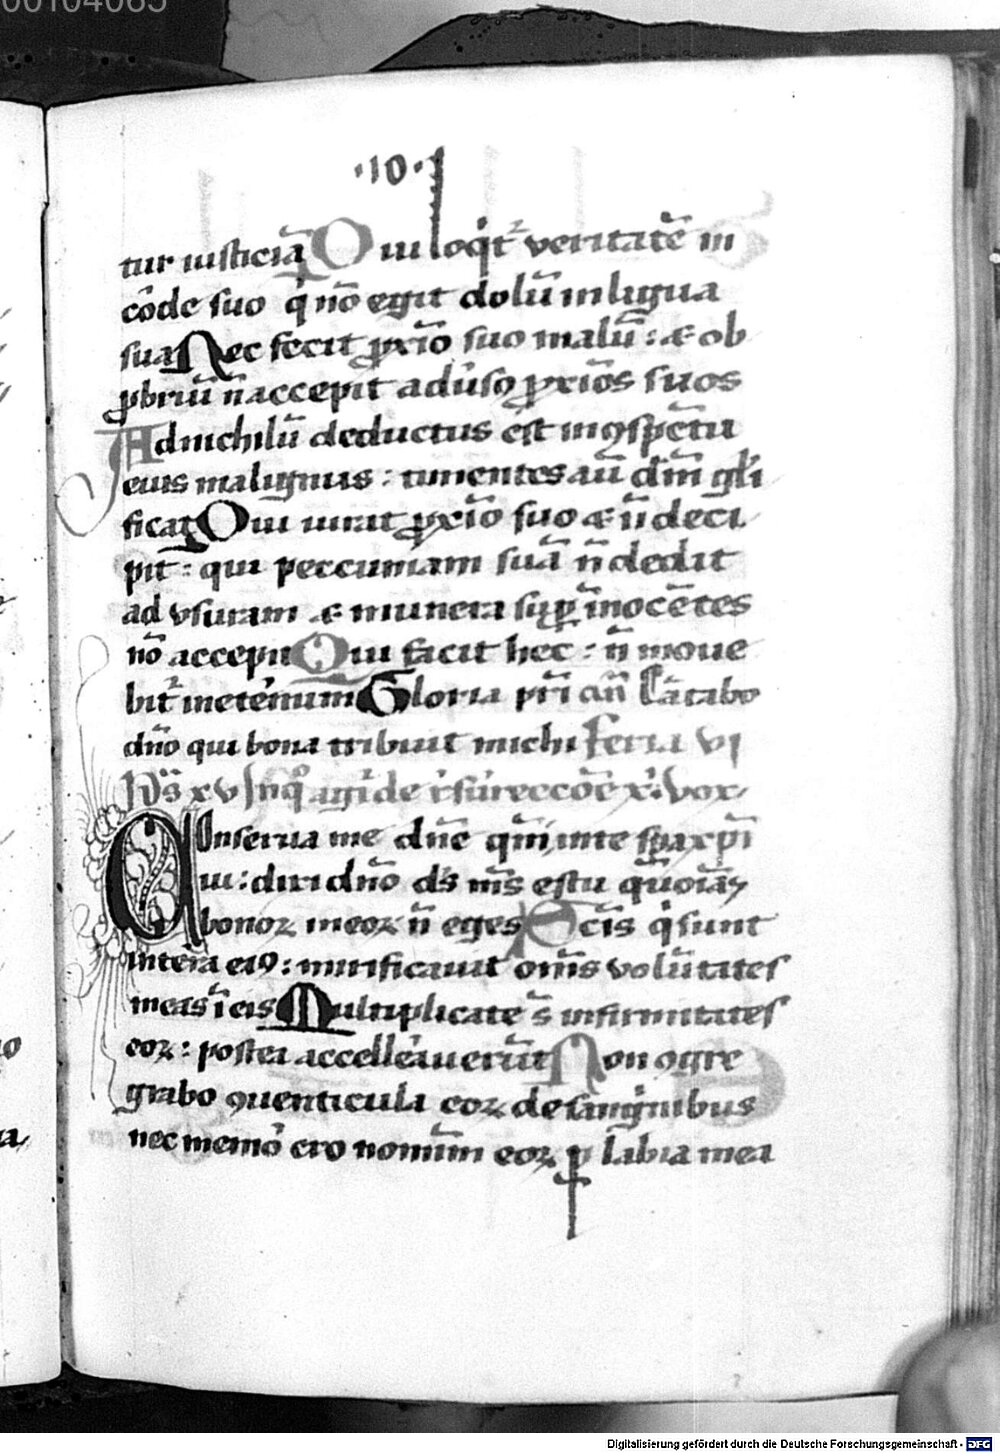 00104065
·10·
tur iusticiā Qui loqit᷑ veritatē in
corde suo qi nō egit dolū in ligua
sua Nec fecit ꝓxīo suo malū : ⁊ ob
ꝓbriū n̄ accepit aduso ꝓxīos suos
Ad nichilū deductus est in ꝯspc̄tu
eius malignus : timentes aū dn̄m gl'i
ficat Qui iurat ꝓxīo suo ⁊ n̄ deci
pit : qui peccuniam suā n̄ dedit
ad vsuram ⁊ munera suꝑ īnocētes
nō accepit Qui facit hec : n̄ moue
bit᷑ in eternum Gloria pr̄i an̄ Cātabo
dn̄o qui bona tribuit michi Feria vj
Ps̄ xv
Onserua me dn̄e qm̄ in te spaui
bonoꝝ meoꝝ n̄ eges Sc̄is qi sunt
in terra eiꝰ : mirificauit om̄s volūtates
meas ī eis Multiplicate s̄ infirmitates
eoꝝ : postea accellerauerūt Non ꝯgre
grabo ꝯuenticula eoꝝ de sanguinibus
nec memor ero nomīm eoꝝ ꝑ labia mea
Digitalisierung gefördert durch die Deutsche Forschungsgemeinschaft - DFG